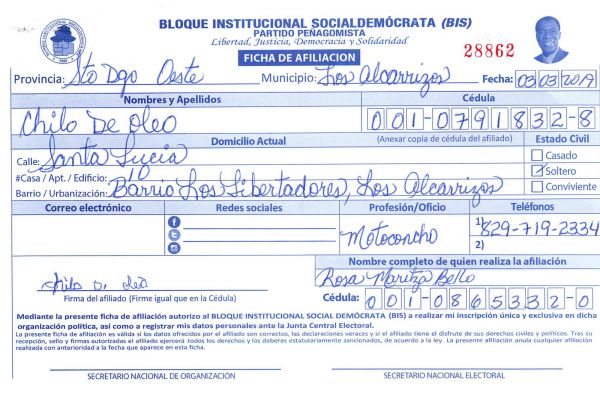 BLOQUE INSTITUCIONAL SOCIALDEMÓCRATA (BIS)
PARTIDO PEÑAGOMISTA
Libertad, Justicia, Democracia y Solidaridad
FICHA DE AFILIACION
28862
Provincia: Sto Dgo Oeste Municipio: Los Alcarrizos Fecha: 03/03/2019
Nombres y Apellidos Cédula
Chilo De Oleo 001-0791832-8
(Anexar copia de cédula del afiliado)
Domicilio Actual Estado Civil
Calle: Santa Lucia Casado
#Casa / Apt. / Edificio: 10 Soltero
Barrio / Urbanización: Barrio Los Libertadores, Los Alcarrizos Conviviente
Correo electrónico Redes sociales Profesión/Oficio Teléfonos
Motoconcho 1) 829-719-2334
2)
Nombre completo de quien realiza la afiliación
Rosa Maritza Bello
chilo D. oleo
Firma del afiliado (Firme igual que en la Cédula) Cédula: 001-0865332-0
Mediante la presente ficha de afiliación autorizo al BLOQUE INSTITUCIONAL SOCIAL DEMÓCRATA (BIS) a realizar mi inscripción única y exclusiva en dicha
organización política, así como a registrar mis datos personales ante la Junta Central Electoral.
La presente ficha de afiliación es válida si los datos ofrecidos por el afiliado son correctos, las declaraciones veraces y si el afiliado tiene el disfrute de sus derechos civiles y políticos. Tras su
recepción, sello y firmas autorizadas el afiliado ejercerá todos los derechos y los deberes estatutariamente sancionados, de acuerdo a la ley. La presente afiliación anula cualquier afiliación
realizada con anterioridad a la fecha que aparece en esta ficha.
SECRETARIO NACIONAL DE ORGANIZACIÓN SECRETARIO NACIONAL ELECTORAL